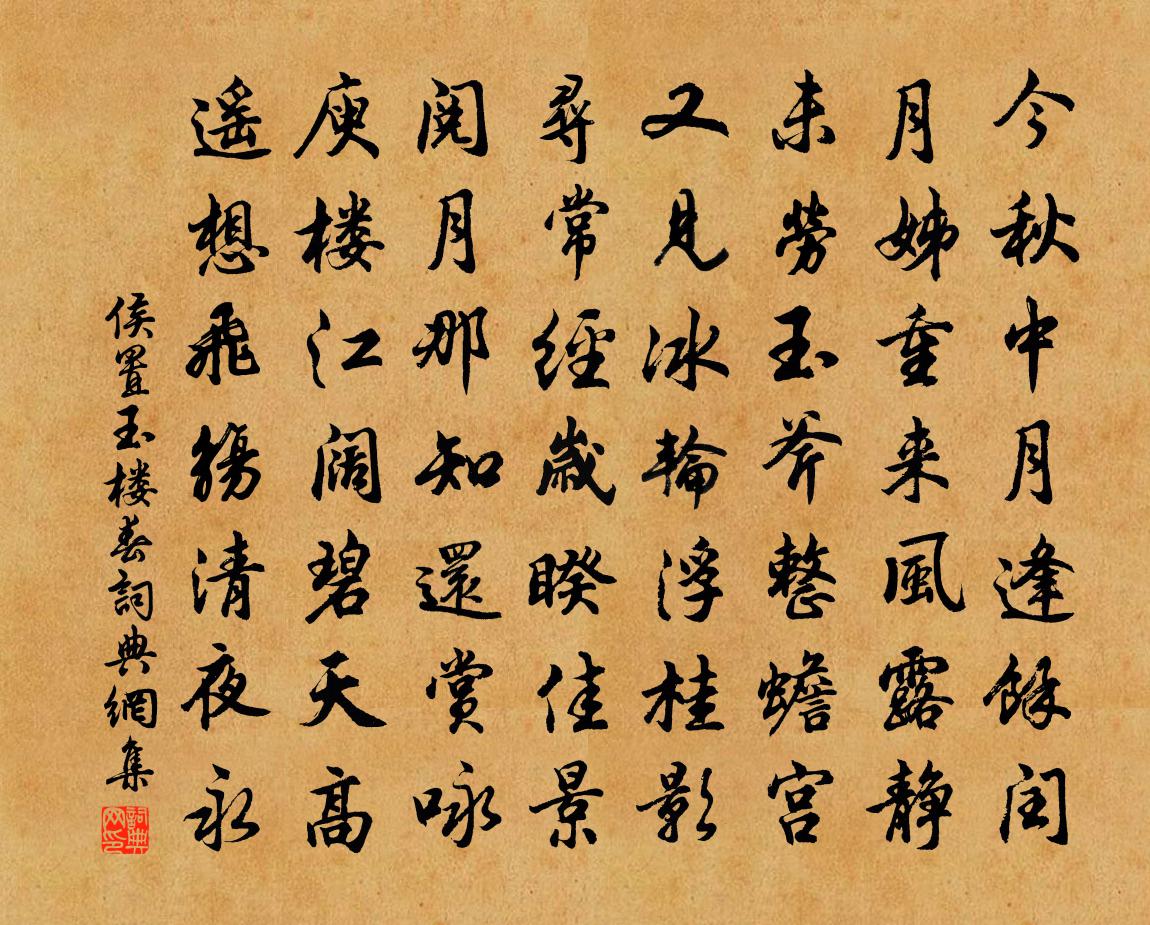 今秋中月逢餘闰
月姊重来風露静
未勞玉斧整蟾宫
又見冰輪浮桂影
尋常經歲睽佳景
阅月那知還賞咏
庾楼江阔碧天高
遥想飛觴清夜永
侯置玉楼春詞典網集
詞典网印